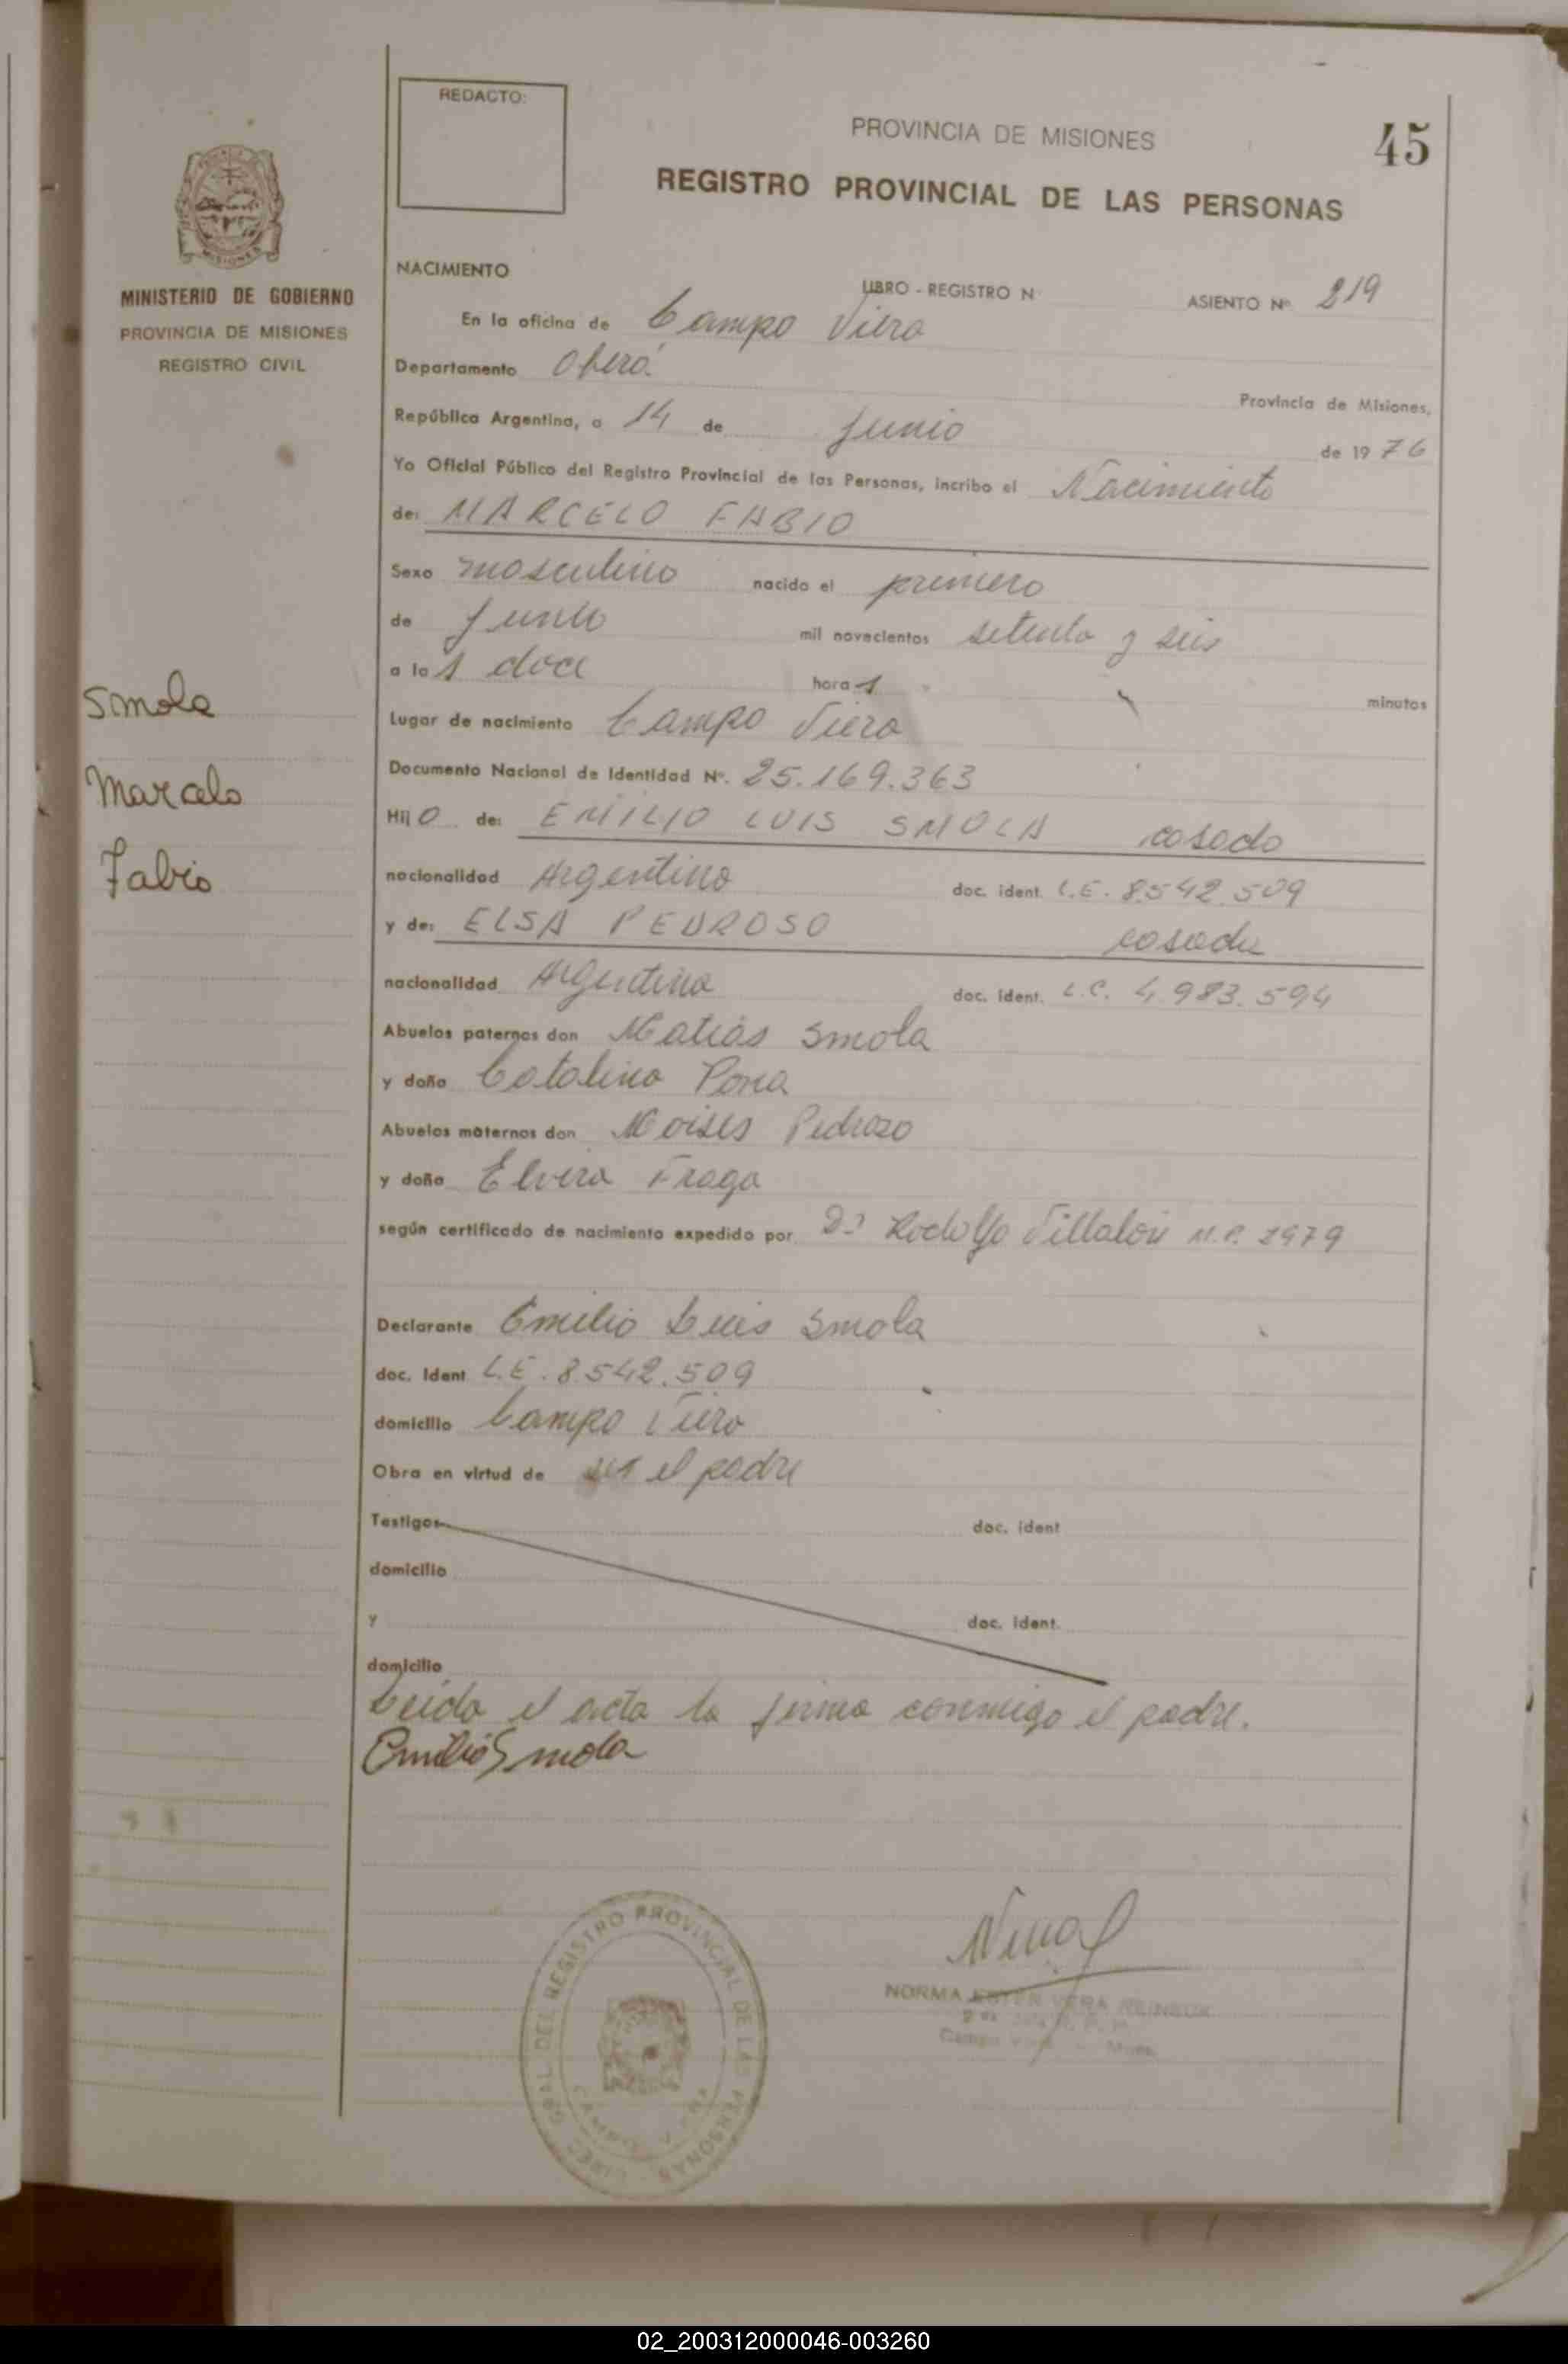 REDACTO:
PROVINCIA DE MISIONES
45
REGISTRO PROVINCIAL DE LAS PERSONAS
MISIONES
MINISTERIO DE GOBIERNO
PROVINCIA DE MISIONES
REGISTRO CIVIL
NACIMIENTO
LIBRO - REGISTRO N
ASIENTO Nº 219
En la oficina de Campo Viera
Departamento Oberá.
Provincia de Misiones,
República Argentina, a 14 de Junio de 1976
Yo Oficial Público del Registro Provincial de las Personas, incribo el Nacimiento
de: MARCELO FABIO
Sexo masculino nacido el primero
de Junio mil novecientos setenta y seis
a las doce horas minutos
Smola
Lugar de nacimiento Campo Viera
Marcelo
Documento Nacional de Identidad Nº. 25.169.363
Hijo de: EMILIO LUIS SMOLA casado
Fabio
nacionalidad Argentino doc. ident. L.E. 8.542.509
y de: ELSA PEDROSO casada
nacionalidad Argentina doc. ident. L.C. 4.983.594
Abuelos paternos don Matias Smola
y doña Catalina
Abuelos maternos don Moises Pedrozo
y doña Elvira Fraga
según certificado de nacimiento expedido por Dr Rodolfo Villalon M.P. 2979
Declarante Emilio Luis Smola
doc. Ident L.E. 8.542.509
domicilio Campo Viera
Obra en virtud de ser el padre
Testigos doc. ident
domicilio
y doc. ident.
domicilio
Leida el acta la firma conmigo el padre.
Emilio Smola
REGISTRO PROVINCIAL DE LAS PERSONAS
NORMA ESTER VERA
02_200312000046-003260